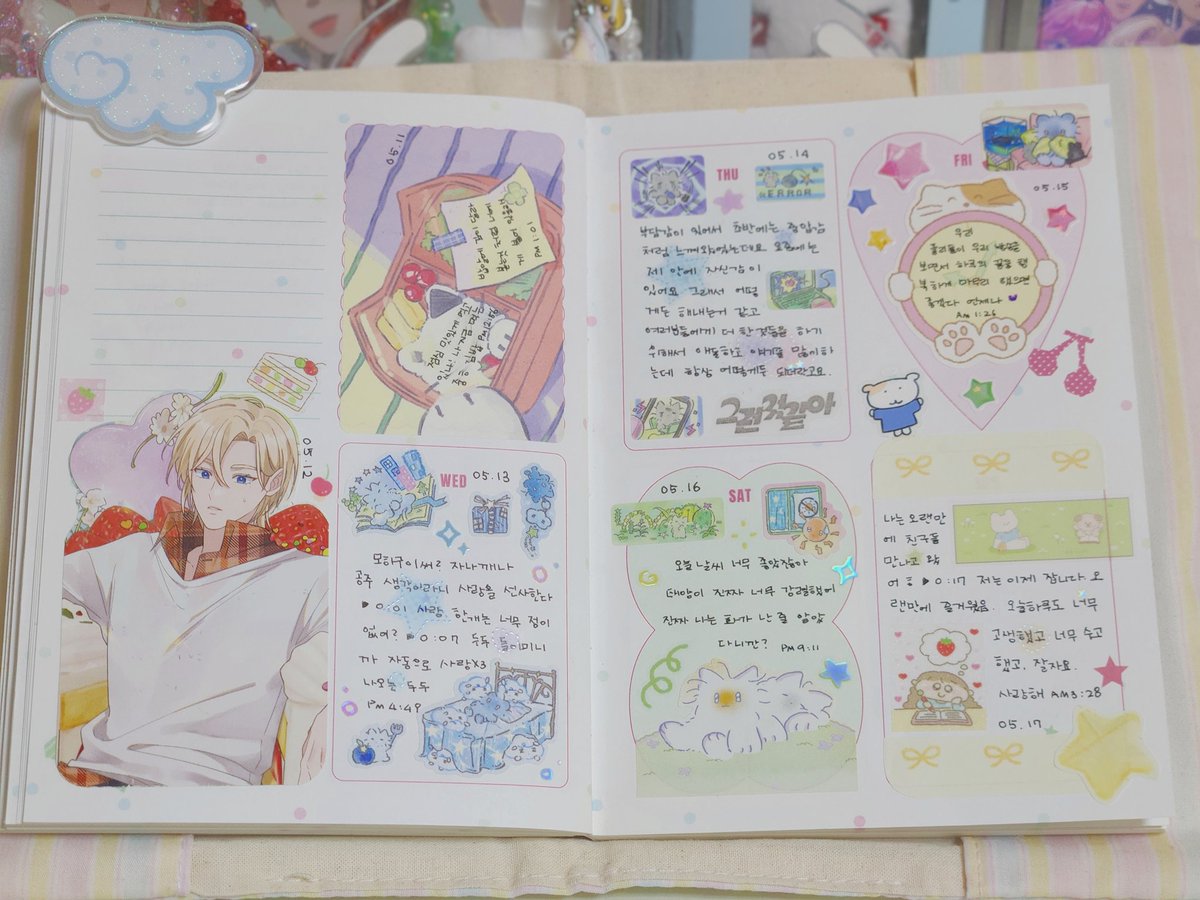 05.11
PM 1:01
05.12
WED
05.13
모하구이써? 자나깨나
공주 생각이라니 사랑을 선사한다
▶0:01 사랑 한개는 너무 점이
없어? ▶0:07 두두 들이미니
까 자동으로 사랑X3
나오는 두두
PM 4:49
THU
05.14
ERROR
부담감이 있어서 초반에는 중압감
처럼 느껴왔었는데요 요즘에는
제 안에 자신감이
있어요 그래서 어떻
게든 해내는거 같고
여러분들에게 더 한것들을 하기
위해서 애를하고 얘기를 많이하
는데 항상 어떻게든 되더라고요.
그런것같아
FRI
05.15
우리
들이 우리 보면서 하루의 끝을 행
복하게 마무리 했으면
좋겠다 언제나
AM 1:26
05.16
SAT
오늘 날씨 너무 좋았잖아
태양이 진짜 너무 강렬했어
진짜 나는 화가 난 줄 알았
다니깐? PM 9:11
나는 오랜만
에 친구들
만나고 왔
어ㅎ ▶0:17 저는 이제 잡니다 오
랜만에 즐거웠음. 오늘하루도 너무
고생했고 너무 수고
했고. 잘자요.
사랑해 AM 3:28
05.17